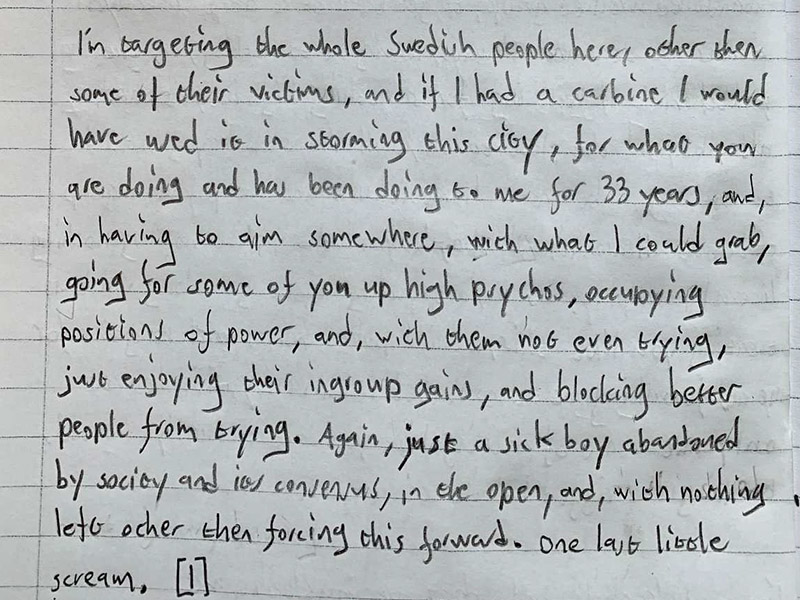 I'm targeting the whole Swedish people here, other then
some of their victims, and if I had a carbine I would
have used it in storming this city, for what you
are doing and has been doing to me for 33 years, and,
in having to aim somewhere, with what I could grab,
going for some of you up high psychos, occupying
positions of power, and, with them not even trying,
just enjoying their ingroup gains, and blocking better
people from trying. Again, just a sick boy abandoned
by society and its consensus, in the open, and, with nothing
left other then forcing this forward. One last little
scream. [1]